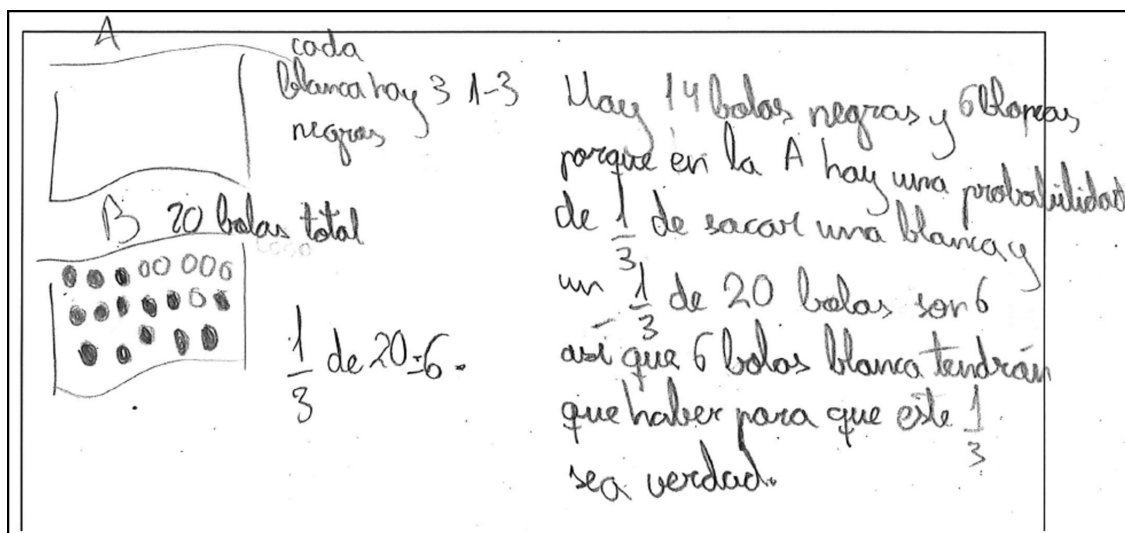 A
cada
blanca hay 3 1-3
negras
B 20 bolas total
1/3 de 20=6.
Hay 14 bolas negras y 6 blancas
porque en la A hay una probabilidad
de 1/3 de sacar una blanca y
un 1/3 de 20 bolas son 6
asi que 6 bolas blanca tendrán
que haber para que este 1/3
sea verdad.